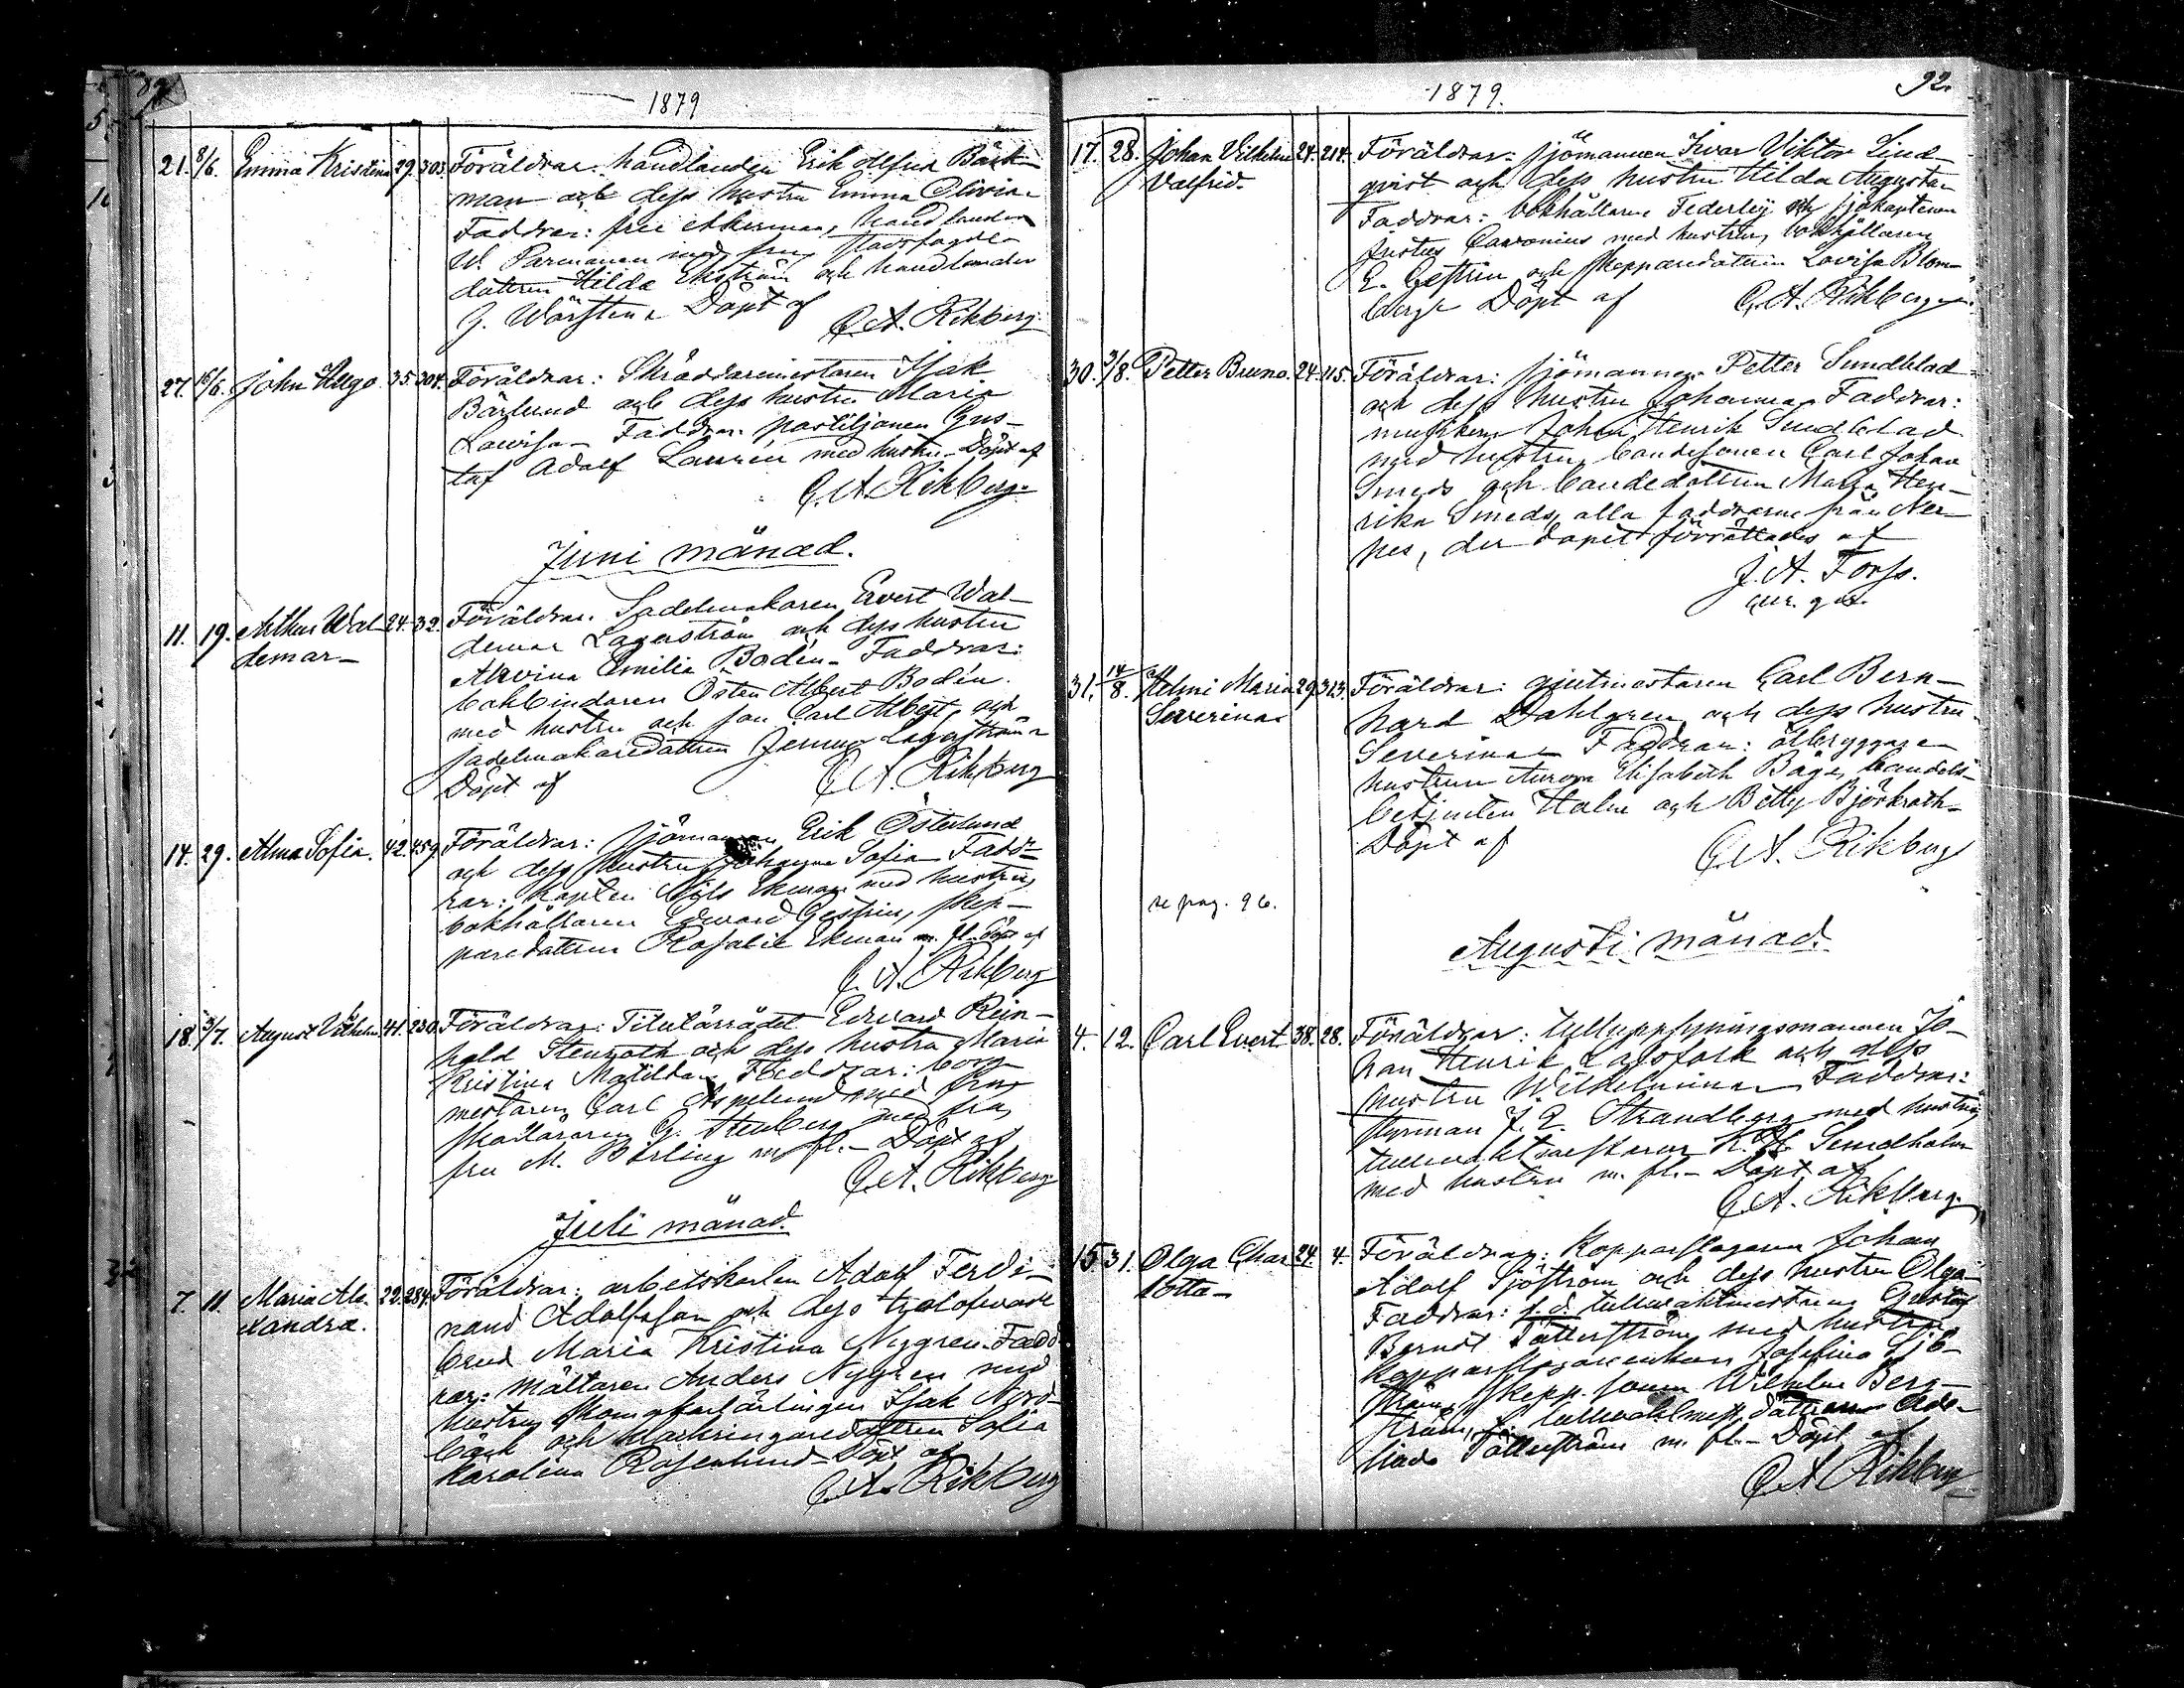 1879
21. 8/6. Emma Kristina 29. 303. Föräldrar: handlanden Erik Alfred Bäck-
man och dess hustru Emma Olivia
Faddrar: fru Akerman, handlanden
W. Parmanen med fru, stadsfogde-
dottren Hilda Ekström och handlanden
G. Wärsten Döpt af
C. A. Rikberg.
27. 15/6. John Hugo 35. 304. Föräldrar: Skräddaremestaren Isak
Bärlund och dess hustru Maria
Lovisa. Faddrar: postiljonen Gus-
taf Adolf Laurén med hustru. Döpt af
C. A. Rikberg.
Juni månad.
11. 19. Arthur Wal- 24. 32. Föräldrar: Sadelmakaren Evert Wal-
demar demar Lagerström och dess hustru
Alvina Emilia Bodén. Faddrar:
bokbindaren Östen Albert Bodén
med hustru och son Carl Albert, och
sadelmakaredottren Jenny Lagerström
Döpt af C. A. Rikberg
14. 29. Alma Sofia. 42. 459. Föräldrar: sjömannen Erik Österlund
och dess hustru Johanna Sofia Fadd-
rar: Kapten Nils Ekman med hustru,
bokhållaren Edward Gestrin, skep-
paredottren Rosalie Ekman m. fl. Döpt af
C. A. Rikberg
18. 3/7. August Vilhelm 41. 230. Föräldrar: Titulärrådet Edvard Rein-
hold Stenroth och dess hustru Maria
Kristina Matilda. Faddrar: borg-
mestaren Carl Aspelund med fru,
G. Stenberg med fru,
fru M. Börling m. fl. - Döpt af
C. A. Rikberg
Juli månad.
7. 11. Maria Ale- 22. 284. Föräldrar: arbetskarlen Adolf Ferdi-
xandra. nand Adolfsson och dess trolofvade
brud Maria Kristina Nygren. Fadd
rar: Mältaren Anders Nygren med
hustru, Isak Nord-
bäck och klockringaredottren Sofia
Karolina Rosenlund - Döpt af
C. A. Rikberg
1879. 92.
17. 28. Johan Vilhelm 24. 214. Föräldrar: sjömannen Ivar Viktor Lind-
Valfrid. qvist och dess hustru Hilda Augusta
Faddrar: bokhållaren Federley och sjökaptenen
Justus Cavonius med hustru, bokhållaren
E. Gestrin och skepparedottren Lovisa Blom-
berg. Döpt af C. A. Rikberg
30. 3/8. Petter Bruno. 24. 115. Föräldrar: sjömannen Petter Sundblad
och dess hustru Johanna. Faddrar:
Johan Henrik Sundblad
med hustru, bondesonen Carl Johan
Smeds och bondedottren Maria Hen-
rika Smeds, alla faddrarne från Ner-
pes, der dopet förrättades af
J. A. Forss.
31. 14/8. Helmi Maria 29. 313. Föräldrar: gjutmestaren Carl Bern-
Severina hard Dahlgren och dess hustru
Severina Faddrar: ölbryggare
hustrun Aurora Elisabeth Båge, handels-
betjenten Holm och Betty Björkroth
Döpt af C. A. Rikberg
se pag. 96.
Augusti månad.
4. 12. Carl Evert 38. 28. Föräldrar: tulluppsyningsmannen Jo-
han Henrik Lassfolk och dess
hustru Wilhelmina Faddrar:
styrman J. E. Strandberg med hustru,
tullvaktmestaren K. H. Sundholm
med hustru m. fl. - Döpt af
C. A. Rikberg.
15 31. Olga Char- 24. 4. Föräldrar: Kopparslagaren Johan
lotta Adolf Sjöström och dess hustru Olga
Faddrar: f. d. tullvaktmestaren Gustaf
Berndt Tätterström med hustru,
kopparslagareenkan Josefina Sjö-
ström, skepp. sonen Wilhelm Berg-
ström, tullvaktmest. dottren Ade-
laide Tätterström m. fl. - Döpt af
C. A. Rikberg